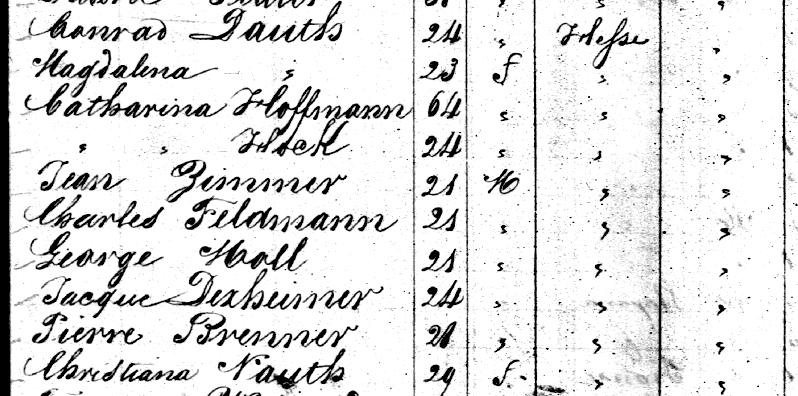 Conrad Dauth 24 " Hesse "
Magdalena " 23 f " "
Catharina Hoffmann 64 " " "
" " Hock 24 " " "
Jean Zimmer 21 M " "
Charles Feldmann 21 " " "
George Holl 21 " " "
Jacque Dexheimer 24 " " "
Pierre Brenner 21 " " "
Christiana Nauth 29 f. " "